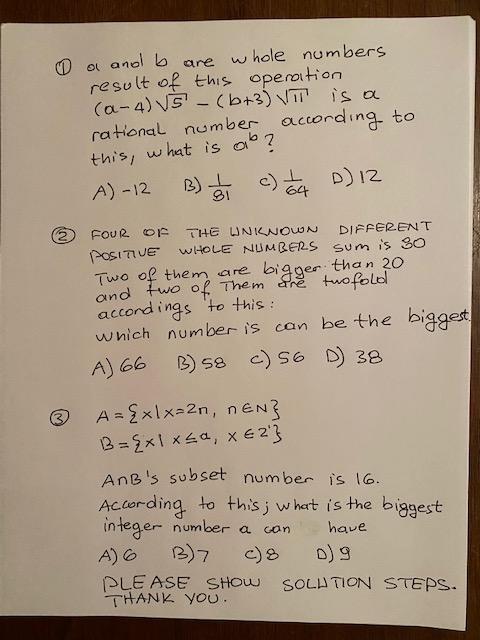 ① a and b are whole numbers
result of this operation
(a-4)√5 - (b+3)√11 is a
rational number according to
this, what is a^b ?
A) -12 B) 1/81 C) 1/64 D) 12
② FOUR OF THE UNKNOWN DIFFERENT
POSITIVE WHOLE NUMBERS sum is 80
Two of them are bigger than 20
and two of Them are twofold
accordings to this :
which number is can be the biggest.
A) 66 B) 58 C) 56 D) 38
③ A = {x|x=2n, n∈N}
B = {x| x≤a, x∈Z}
A∩B's subset number is 16.
According to this; what is the biggest
integer number a can have
A) 6 B) 7 C) 8 D) 9
PLEASE SHOW SOLUTION STEPS.
THANK YOU.